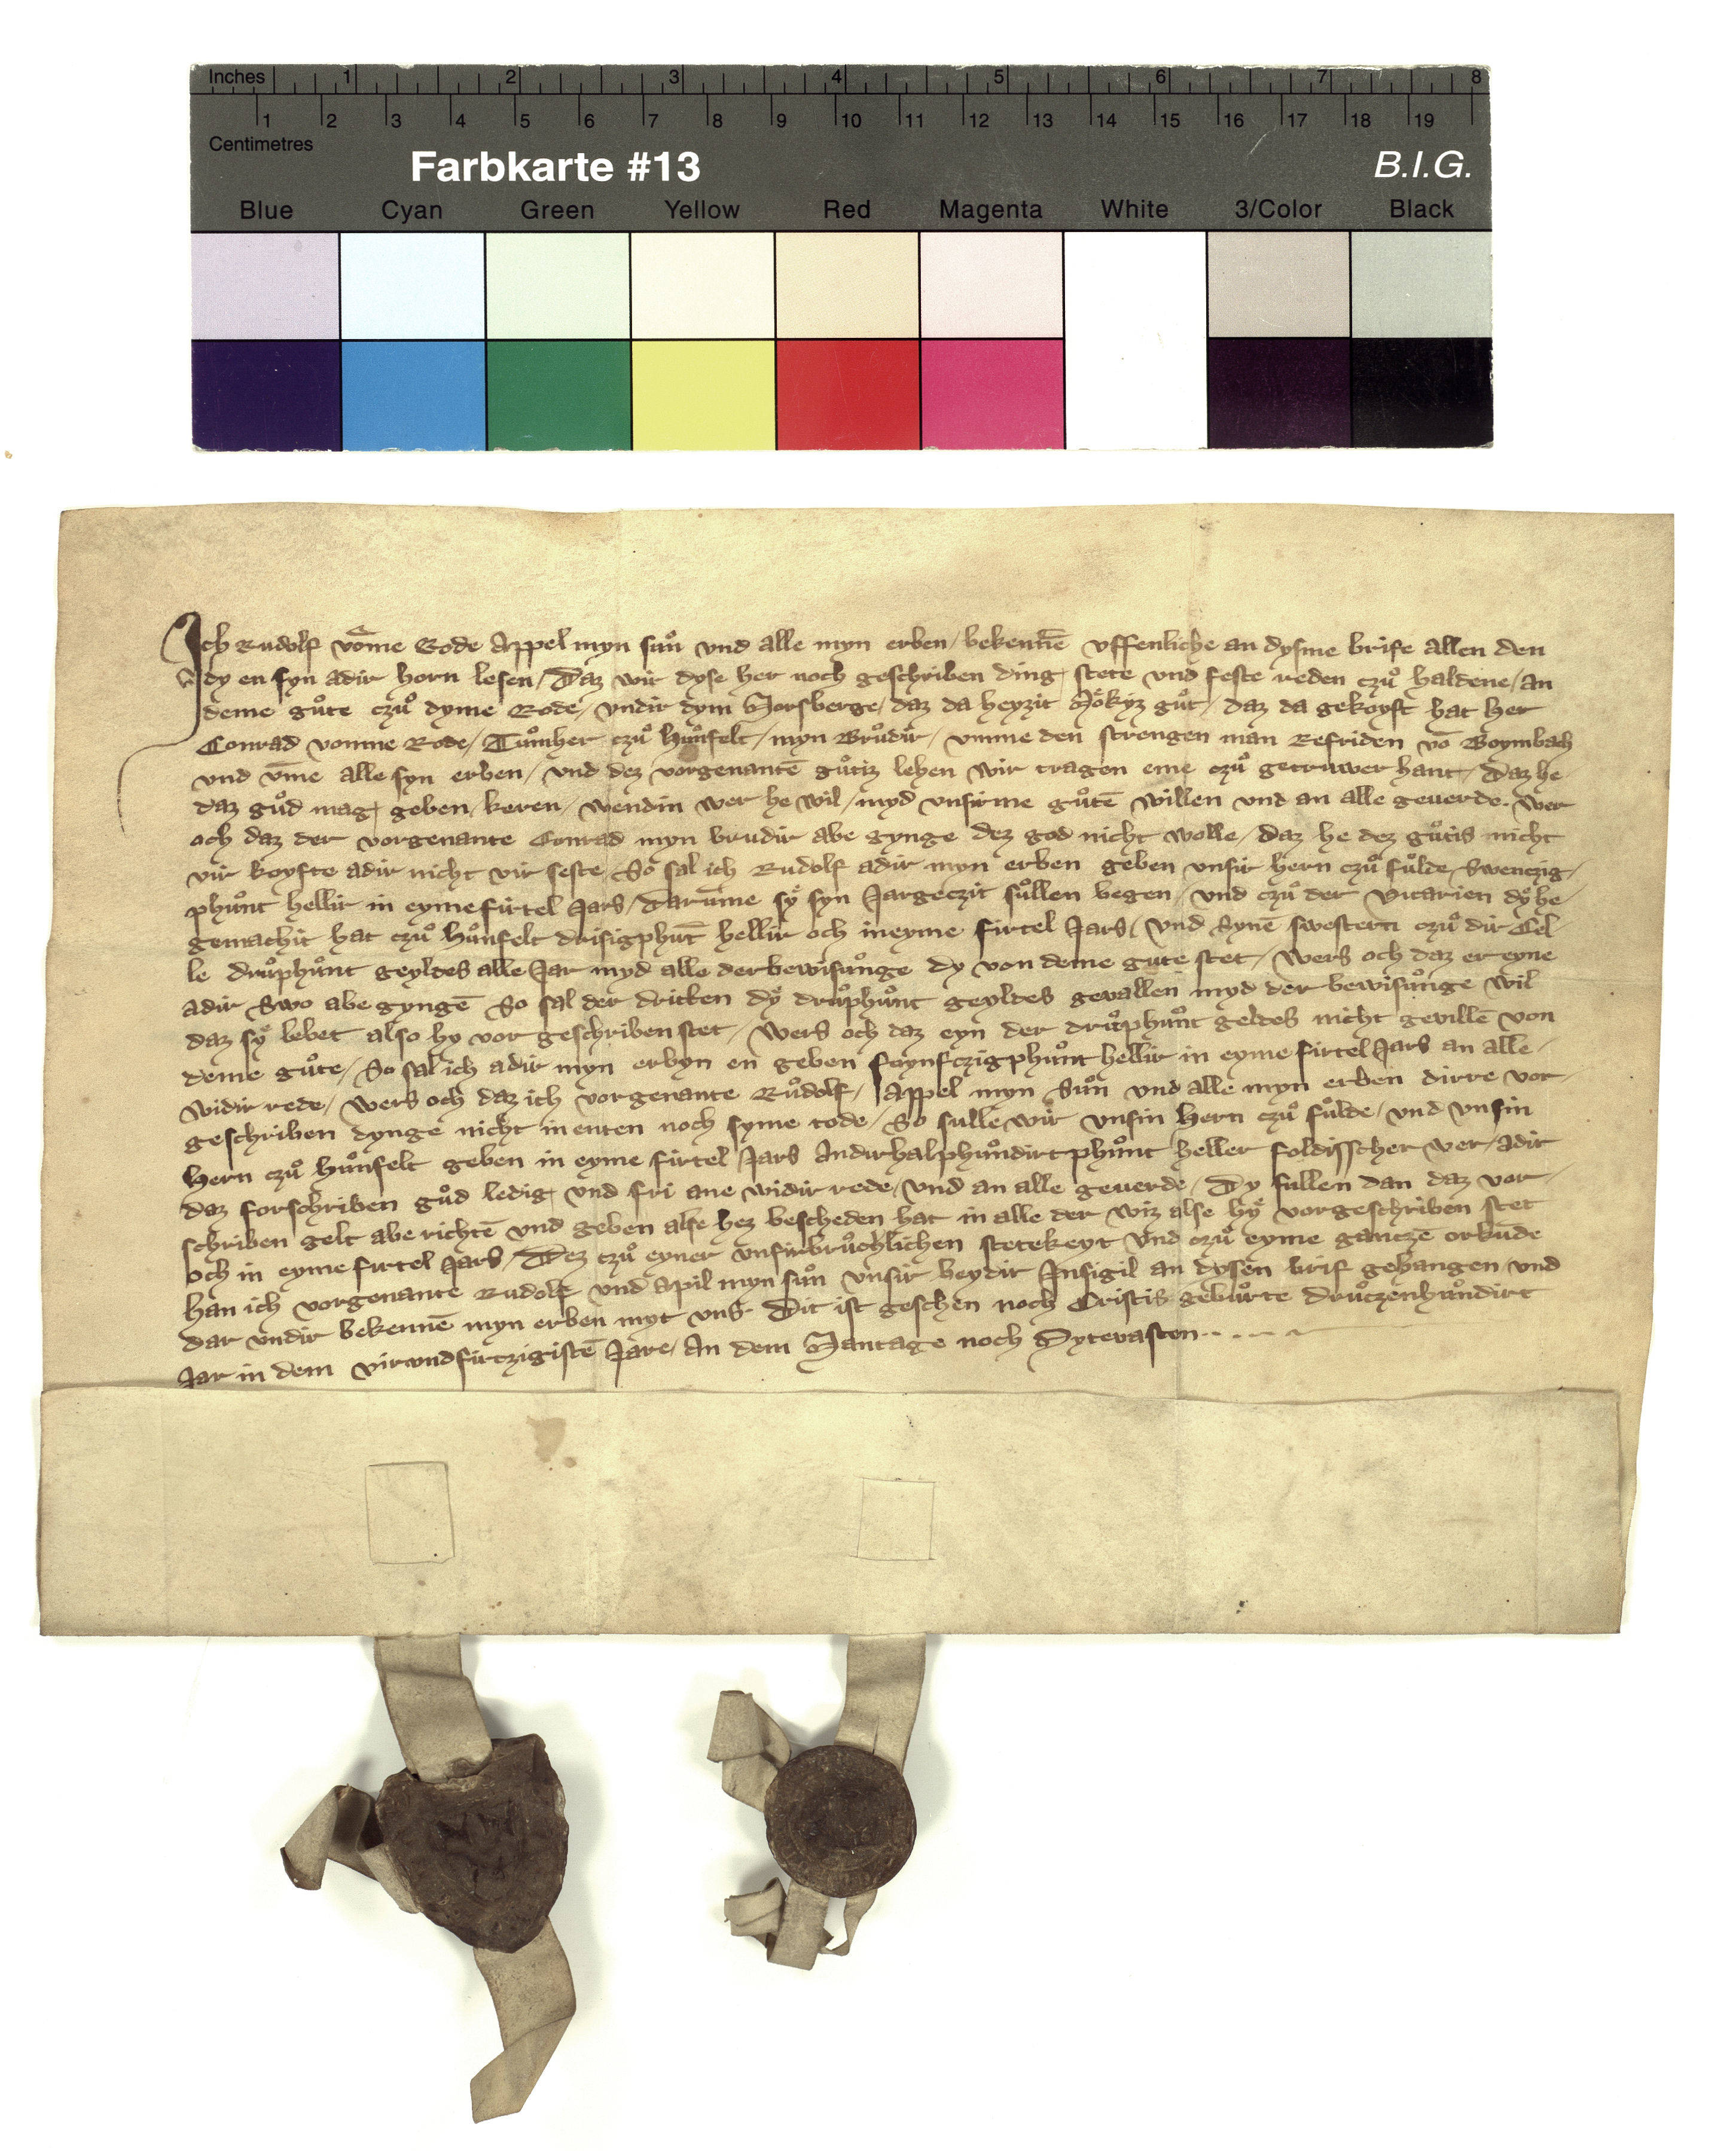 Inches 1 2 3 4 5 6 7 8
1 2 3 4 5 6 7 8 9 10 11 12 13 14 15 16 17 18 19
Centimetres
Farbkarte #13 B.I.G.
Blue Cyan Green Yellow Red Magenta White 3/Color Black
Ich Rudolf vōme Rode Appel myn sůn vnd alle myn erben / bekennē vffenliche an dysme brife allen den
dy en syn adir horn lesen / Daz wir dyse her noch geschriben ding stete vnd feste reden czů haldene / an
deme gůte czů dyme Rode / vndir dym Horsberge / daz da heyzit gůt / daz da gekoyft hat her
Conrad vomme Rode / Tůmher czů Hůnfelt / myn Brůdir / vmme den strengen man Refriden vō Boymbach
vnd vm̄e alle syn erben / vnd dez vorgenantē gůtiz lehen wir tragen eme czů getruwer hant / Daz he
daz gůd mag geben / keren / wendin wer he wil / myd vnsirme gůtē willen vnd an alle geuerde. Wer
och daz der vorgenante Conrad myn brudir abe gynge dez god nicht wolle / daz he dez gůtis nicht
vir koyfte adir nicht vir seste / So sal ich Rudolf adir myn erben geben vnsir hern czů fůlde / Swenczig
phůnt hellir in eyme firtel Jars / Darum̄e sy syn Jargeczit sůllen began / vnd czů der vicarien dy he
gemachit hat czů Hůnfelt drisigphūt hellir och in eyme firtel Jars / vnd Synē swestern czů dir Cel
le drůphůnt geyldes alle Jar myd alle der bewisůnge dy von deme gute stet / Wers och daz er eyne
adir Swo abe gyngē So sal der dritten dy drůphůnt geyldes geuallen myd der bewisůnge wil
daz sy lebet also hy vor geschriben stet / Wers och daz eyn der drůphůnt geldes nicht geuillē von
deme gůte / So sal ich adir myn erbyn en geben fůynfczigphůnt hellir in eyme firtel Jars an alle
widir rede / Wers och daz ich vorgenante Růdolf / Appel myn Sůn vnd alle myn erben dirre vor
geschriben dynge nicht in enten noch syme tode / So sullē wir vnsin Hern czů fůlde / vnd vnsin
Hern czů Hůnfelt geben in eyme firtel Jars Andirhalphůndirtphůnt heller foldisscher wer / adir
daz forschriben gůd ledig vnd fri ane widir rede / vnd an alle geuerde / Dy sullen dan daz vor
schriben gelt abe richtē vnd geben alse hez bescheden hat in alle der wiz alse hy vorgeschriben stet
och in eyme firtel Jars / Dez czů eyner vnsirbrůchlichen stetekeyt vnd czů eyme gantzē orkūde
han ich vorgenante Rudolf vnd Apil myn sůn vnsir beydir Insigil an dysen brif gehangen / vnd
dar vndir bekennē myn erben myt vns Dit ist geschen noch Cristis gebůrte drůtzenhůndirt
Jar in dem virvndfirtzigistē Jare / An dem Santage noch Mytevasten